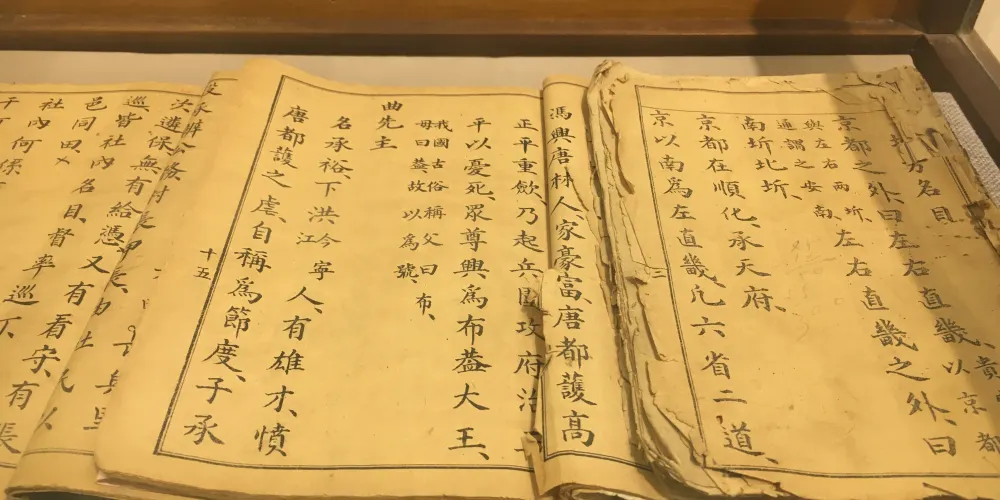 圻方名見
京都之外曰左右直畿以京都
與左右兩圻
通謂之安南
左右直畿之外曰
南圻北圻、
京都在順化、承天府、
京以南爲左直畿、凡六省二道、
三
馮興唐林人、家豪富、唐都護高
正平重歛、乃起兵圍攻府治、
平以憂死、眾尊興、爲布蓋大王、
我國古俗稱父曰布、
母曰蓋、故以爲號、
曲先主
名承裕、下洪今寧江人、有雄才、憤
唐都護之虐、自稱爲節度、子承
十五
保無有給憑、又有看守、有張
巡、皆社內名目、督率巡丁
邑同田
社內何係